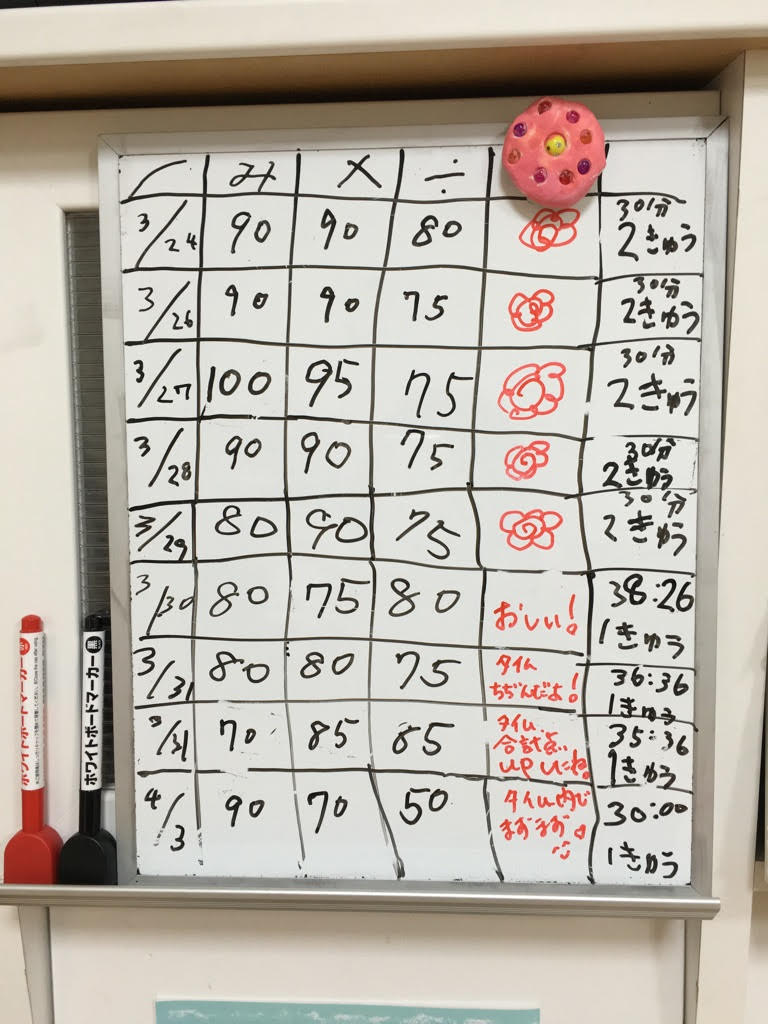 み × ÷
3/24 90 90 80 30分
2きゅう
3/26 90 90 75 30分
2きゅう
3/27 100 95 75 30分
2きゅう
3/28 90 90 75 30分
2きゅう
3/29 80 90 75 30分
2きゅう
3/30 80 75 80 おしい! 38:26
1きゅう
3/31 80 80 75 タイム
ちぢんだよ! 36:36
1きゅう
3/31 70 85 85 タイム、
合計点、
upしたね。 35:36
1きゅう
4/3 90 70 50 タイム内で
まずまず。 30:00
1きゅう
ホワイトボードマーカー 赤
ホワイトボードマーカー 黒